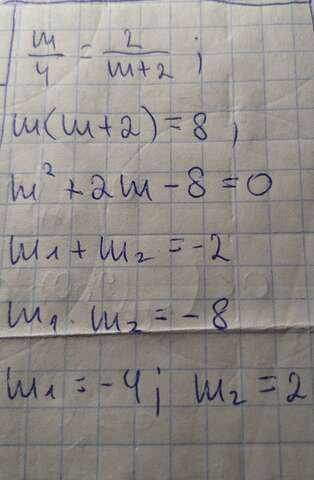 m/4 = 2/(m+2) ;
m(m+2) = 8 ,
m² + 2m - 8 = 0
m₁ + m₂ = -2
m₁ · m₂ = -8
m₁ = -4 ; m₂ = 2